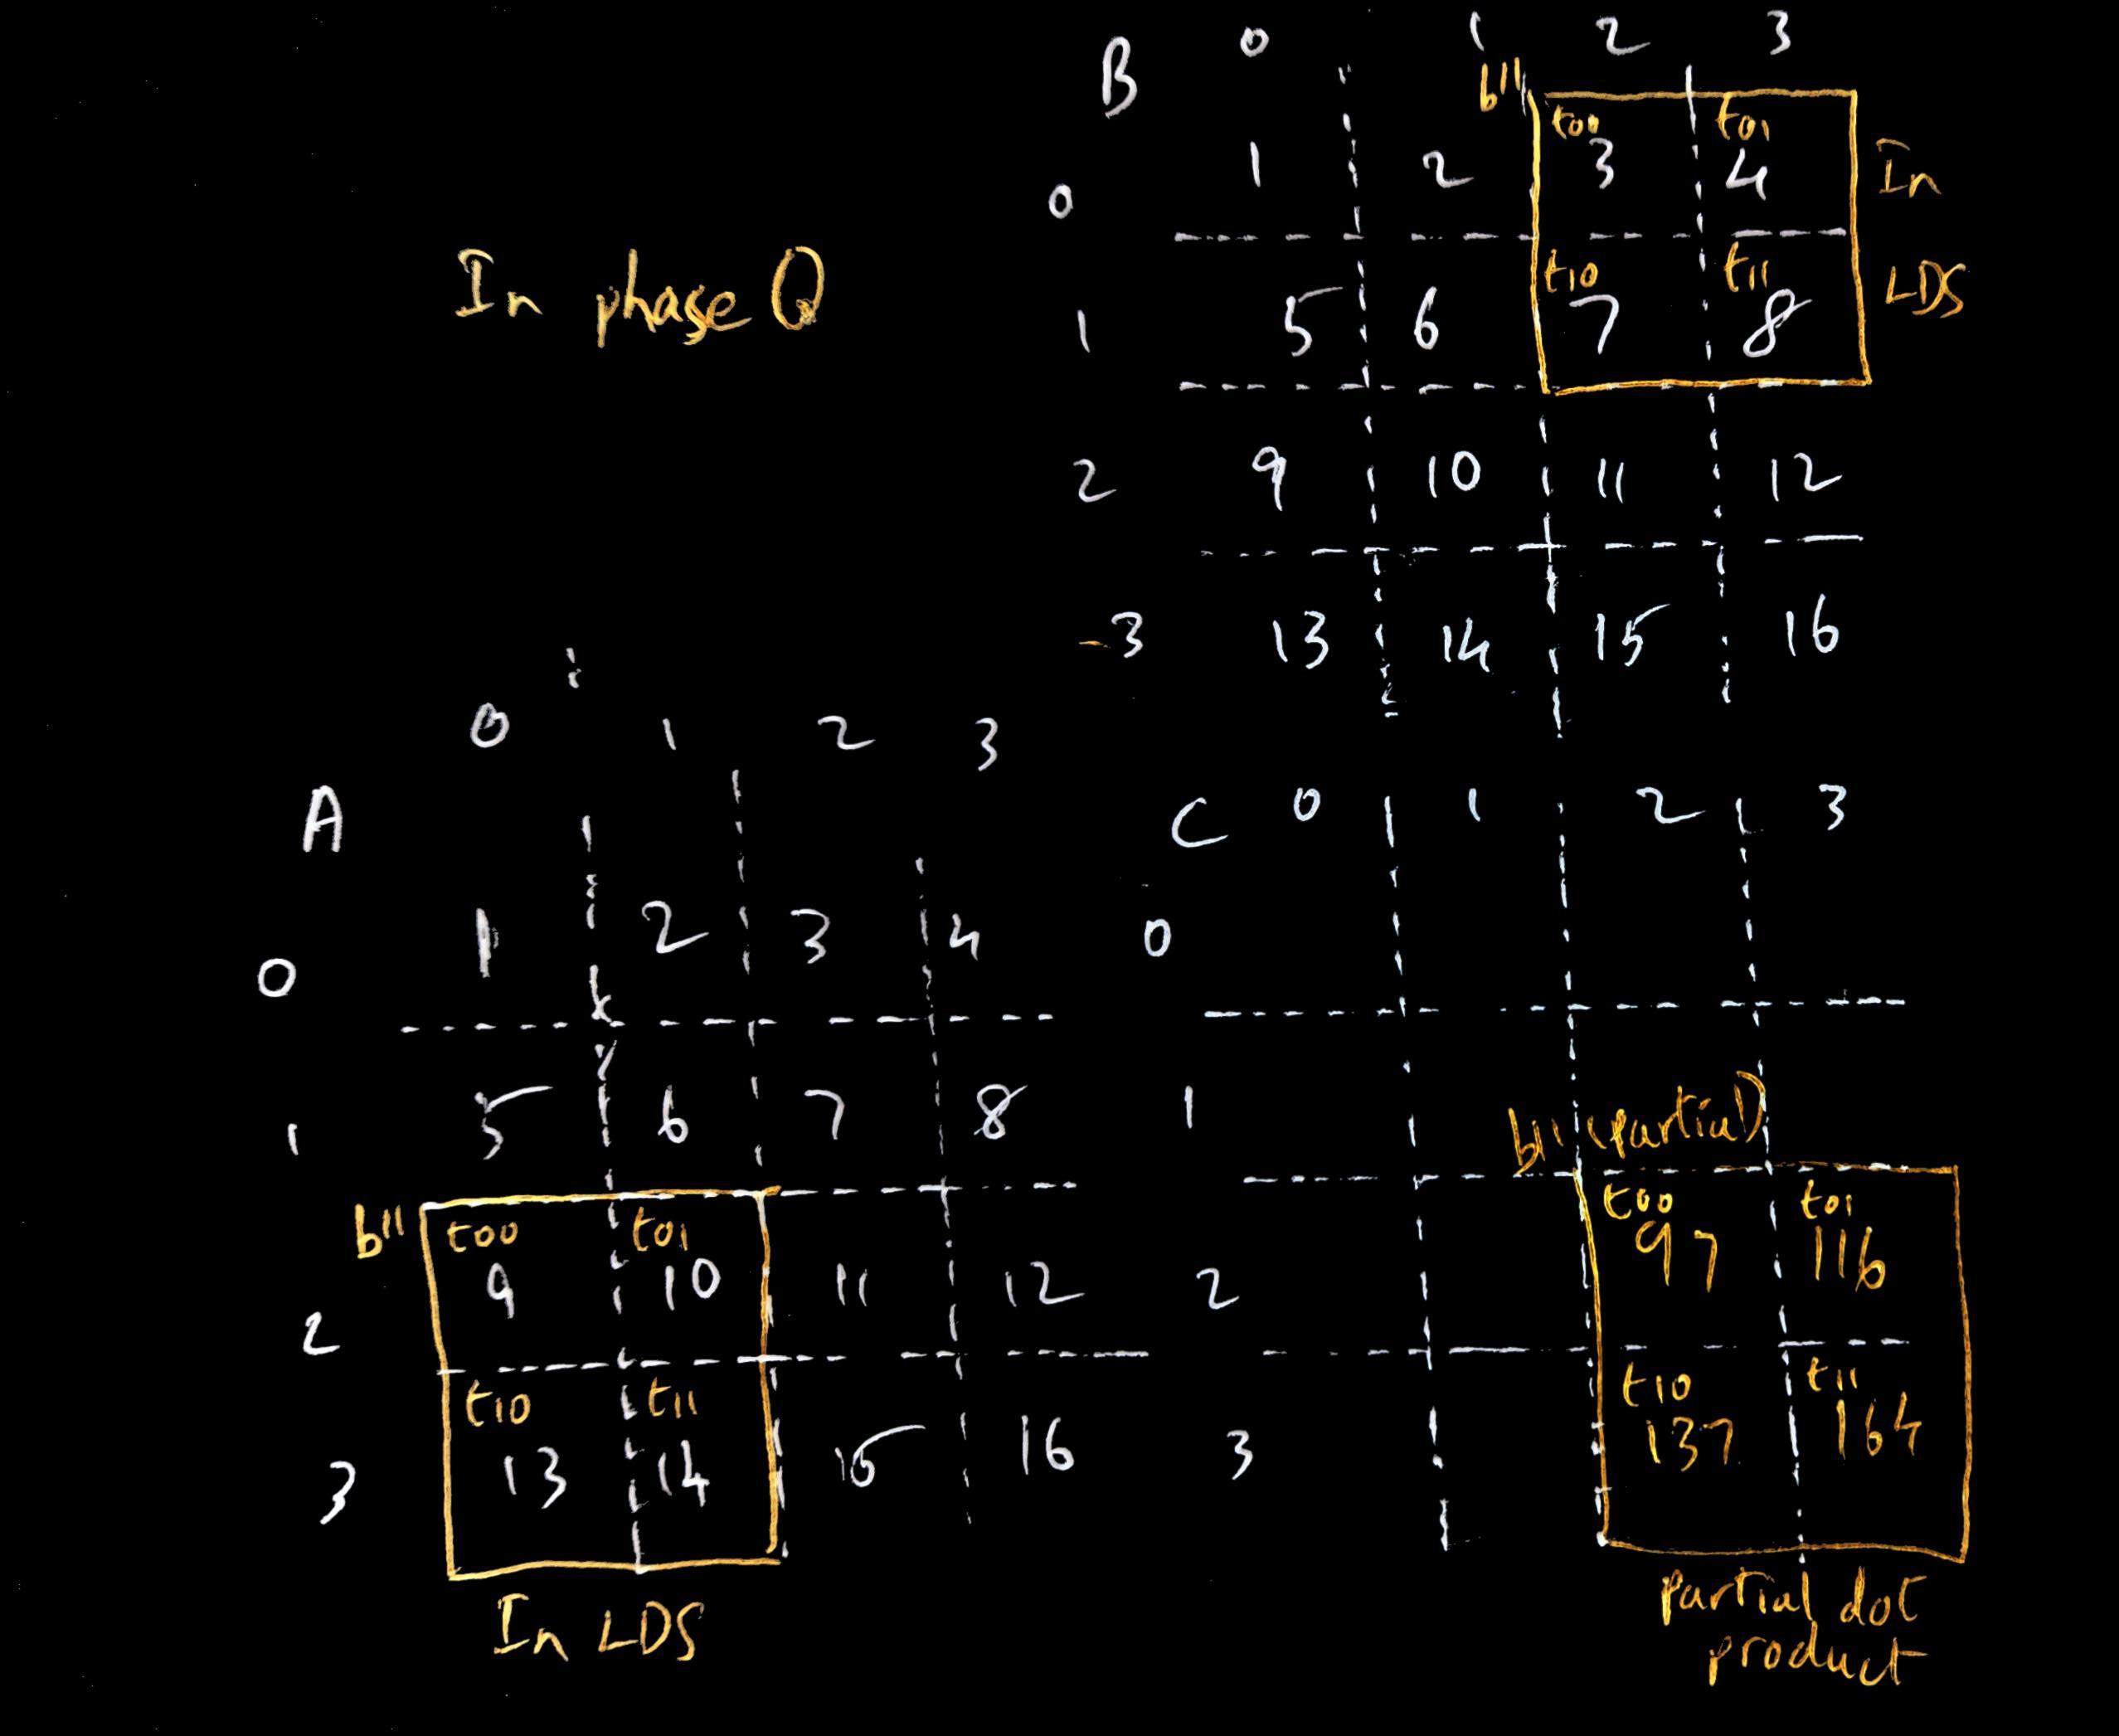 B 0 1 2 3
b11
t00 t01
0 1 2 3 4 In
In phase 0
t10 t11
1 5 6 7 8 LDS
2 9 10 11 12
3 13 14 15 16
0 1 2 3
A
C 0 1 2 3
0 1 2 3 4
0
1 5 6 7 8
1
b11 (partial)
b11 t00 t01
2 9 10 11 12
t10 t11
3 13 14 15 16
In LDS
t00 t01
2 97 116
t10 t11
3 137 164
partial dot
product